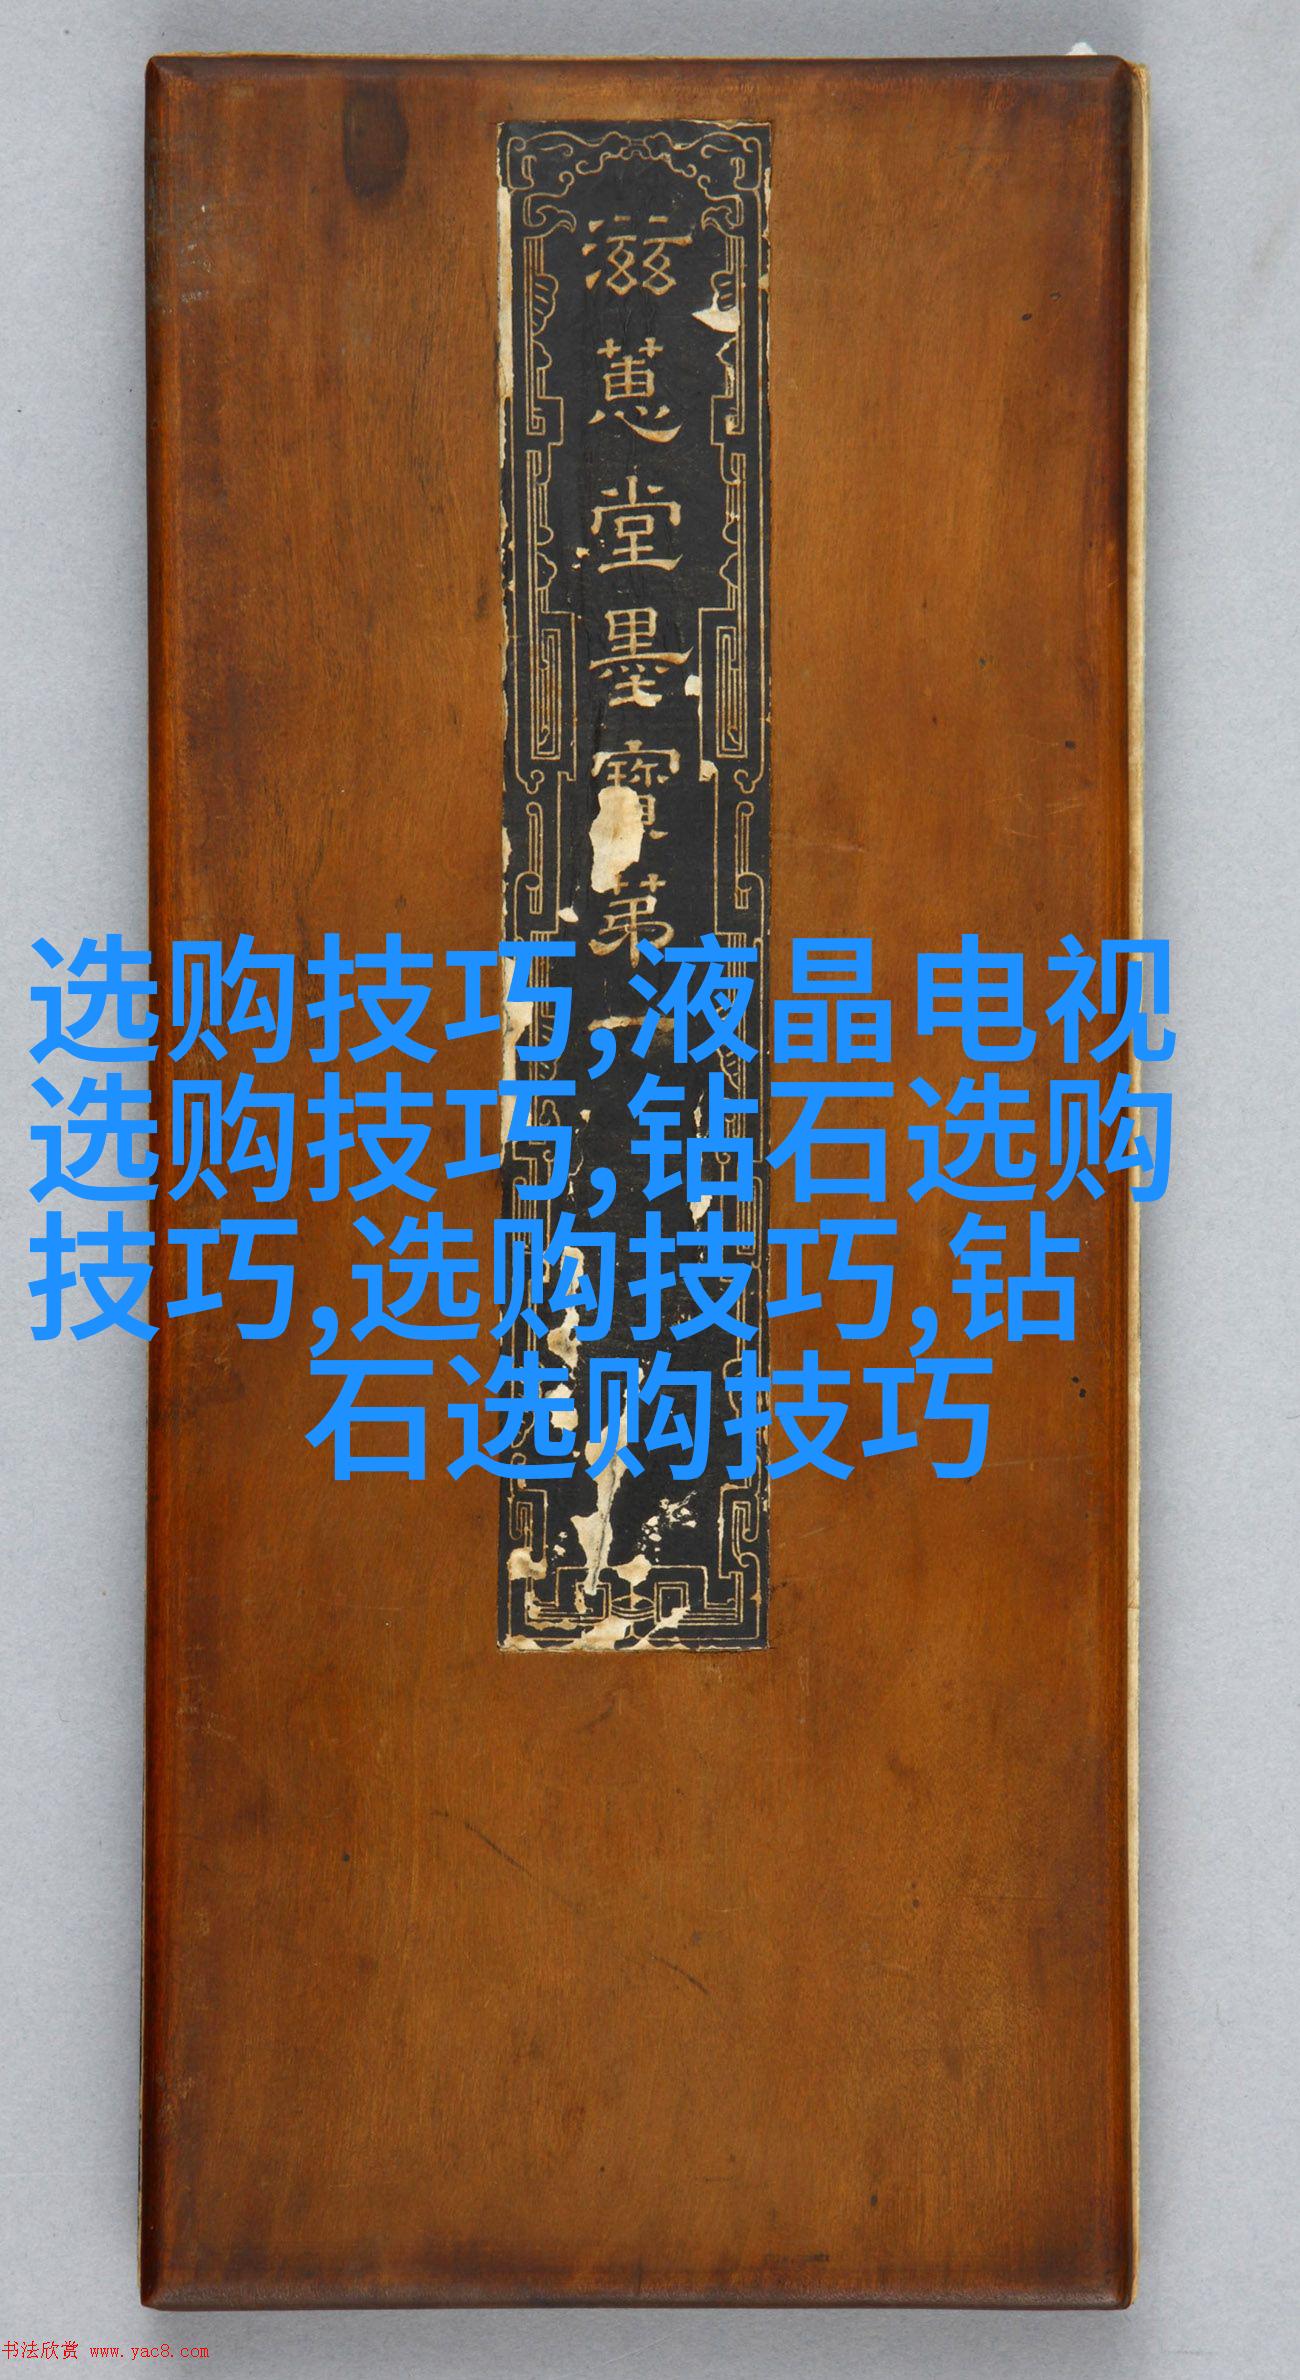 滋蕙堂墨寶苐一
选购技巧,液晶电视
选购技巧,钻石选购
技巧,选购技巧,钻
石选购技巧
书法欣赏 www.yac8.com